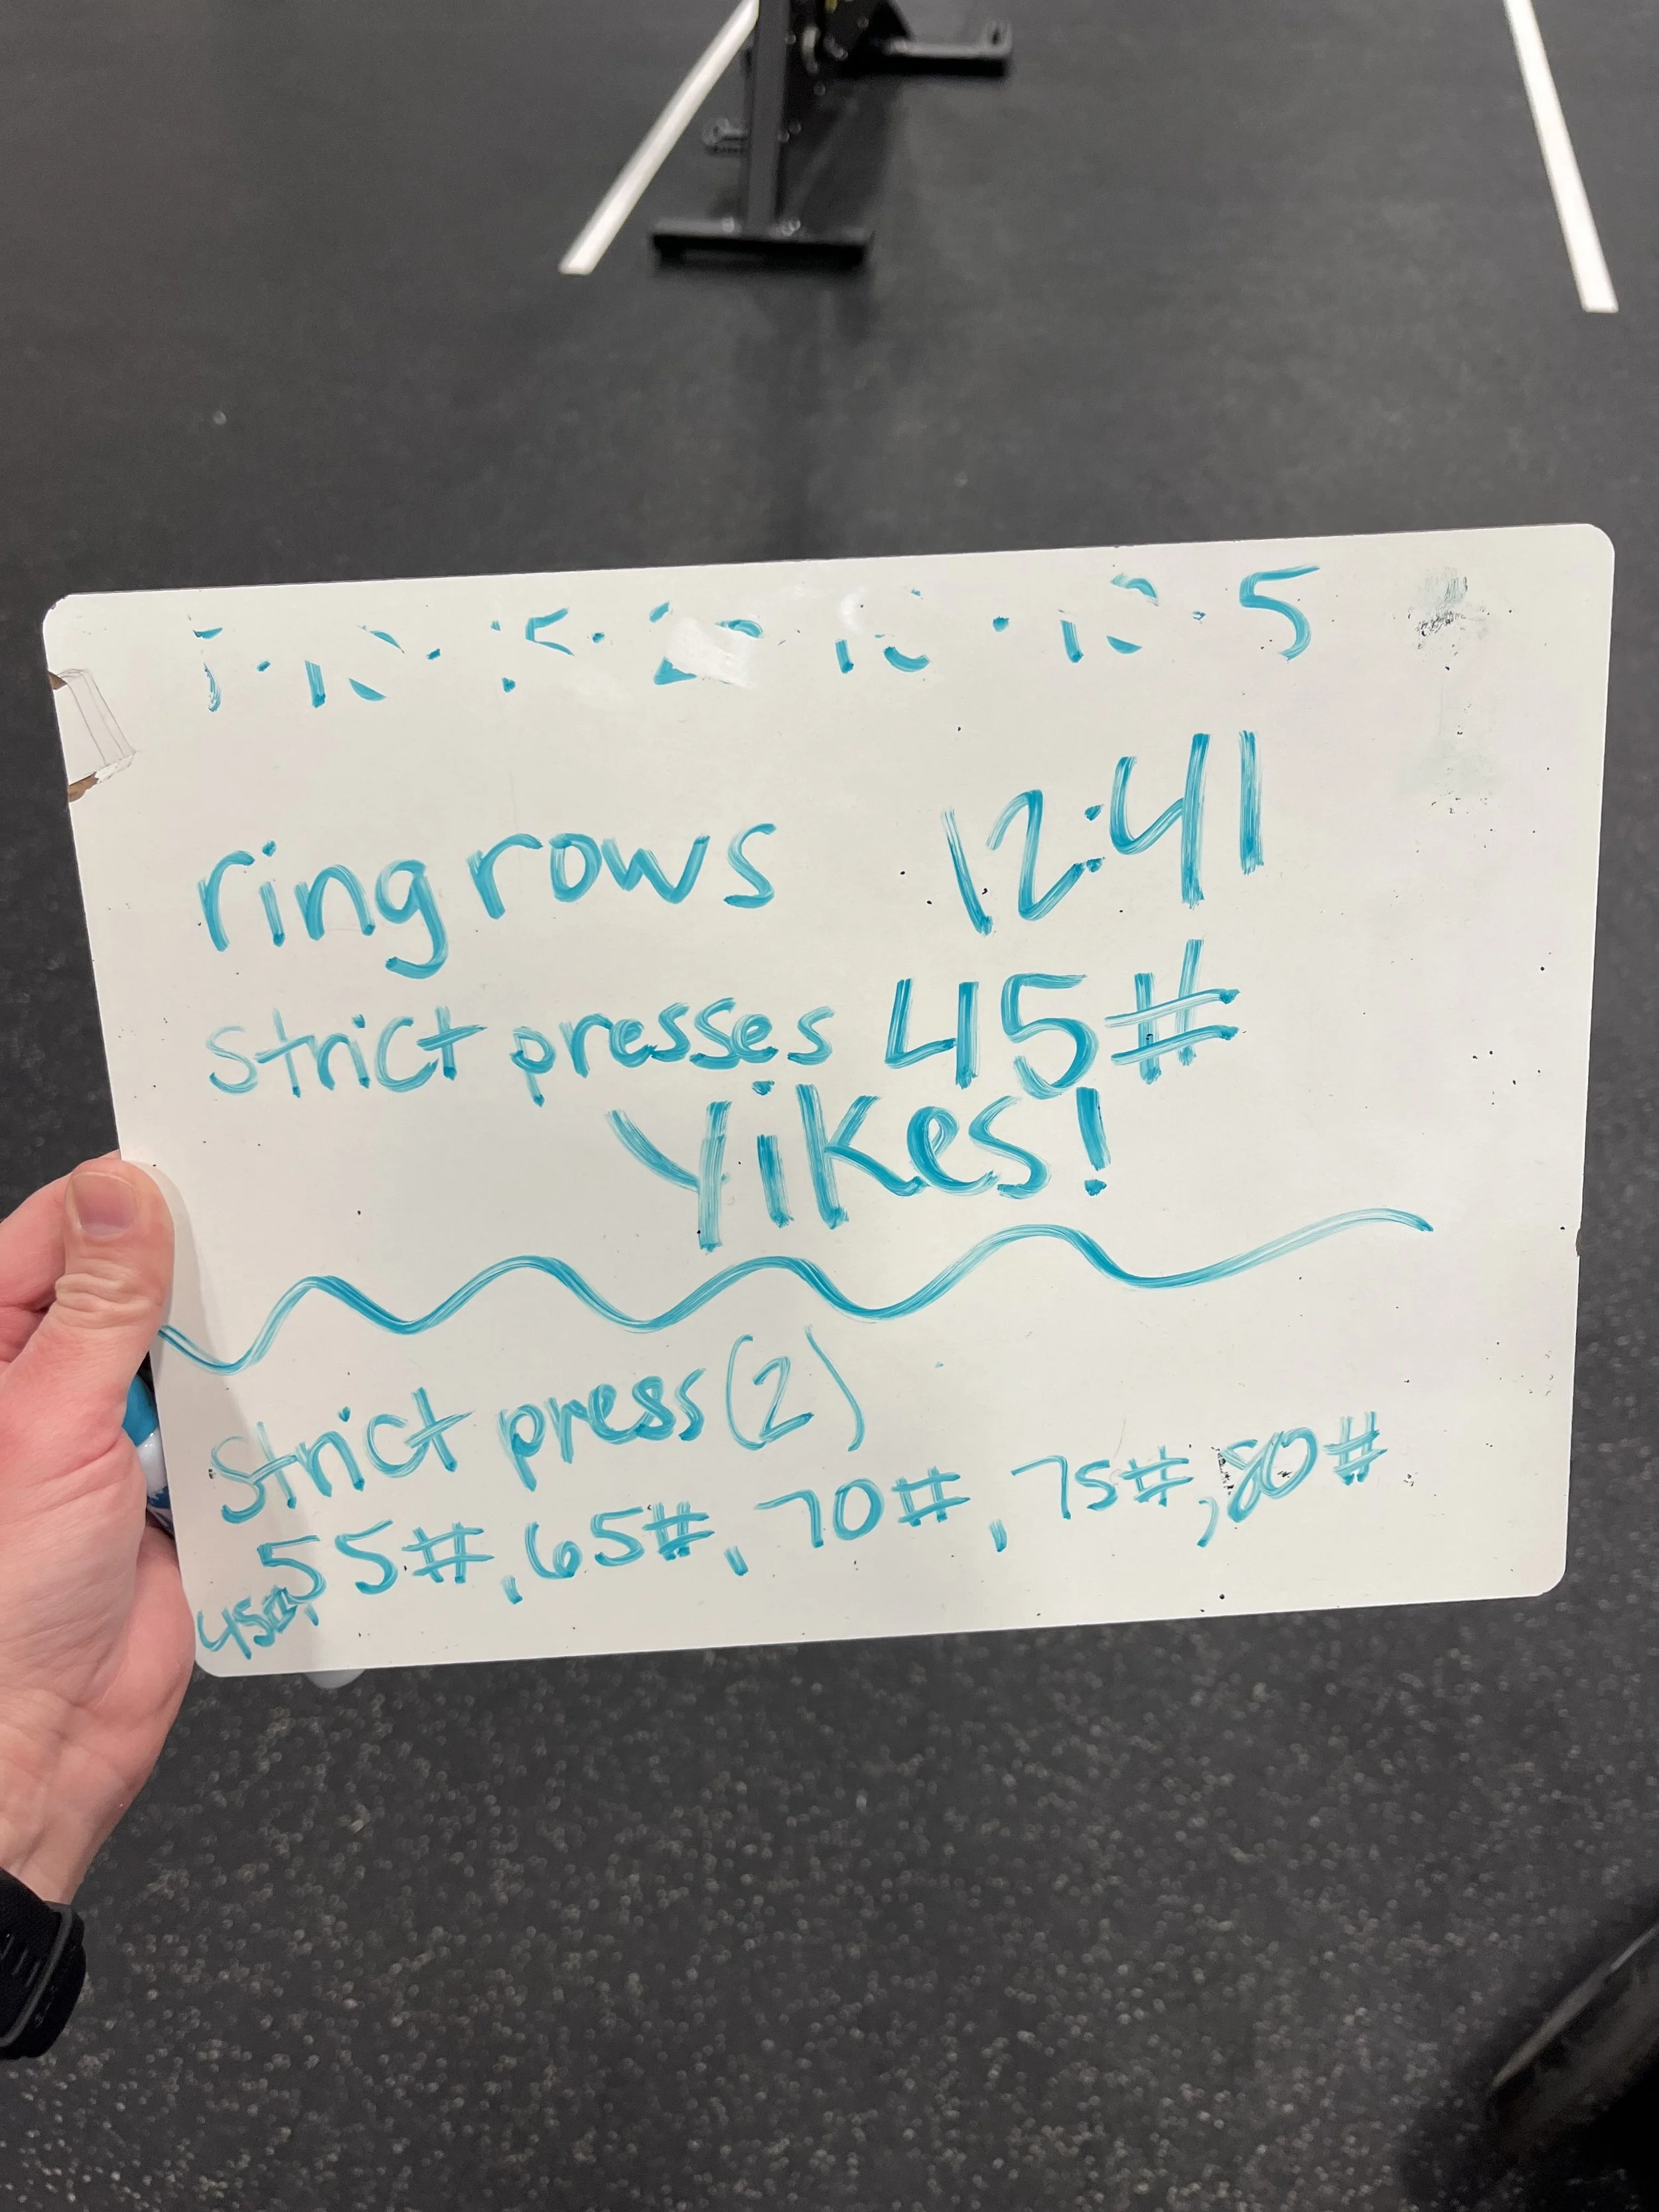 5
ring rows 12:41
strict presses 45#
Yikes!
strict press (2)
45#, 55#, 65#, 70#, 75#, 80#